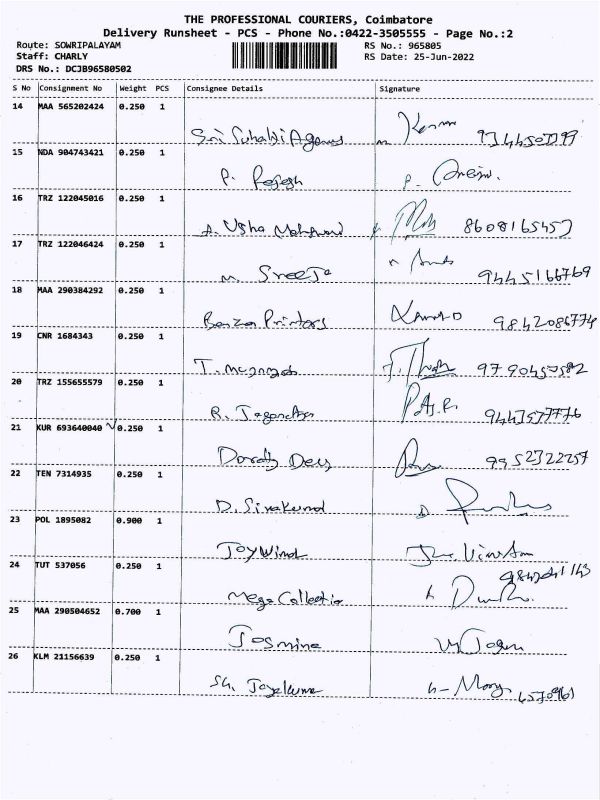 THE PROFESSIONAL COURIERS, Coimbatore
Delivery Runsheet - PCS - Phone No.:0422-3505555 - Page No.:2
Route: SOWRIPALAYAM RS No.: 965805
Staff: CHARLY RS Date: 25-Jun-2022
DRS No.: DCJB96580502
S No Consignment No Weight PCS Consignee Details Signature
14 MAA 565202424 0.250 1
Sri
15 NDA 904743421 0.250 1
P. Rajesh
16 TRZ 122045016 0.250 1
A. Usha 8608165457
17 TRZ 122046424 0.250 1
M Sreeja 9445166769
18 MAA 290384292 0.250 1
Printers 9842086774
19 CNR 1684343 0.250 1
T. 9790450582
20 TRZ 155655579 0.250 1
R. 9443577776
21 KUR 693640040 0.250 1
Devy 9952322257
22 TEN 7314935 0.250 1
D. Sivakumar
23 POL 1895082 0.900 1
Joy Wind
24 TUT 537056 0.250 1
Mega Collection
25 MAA 290504652 0.700 1
Jasmine
26 KLM 21156639 0.250 1